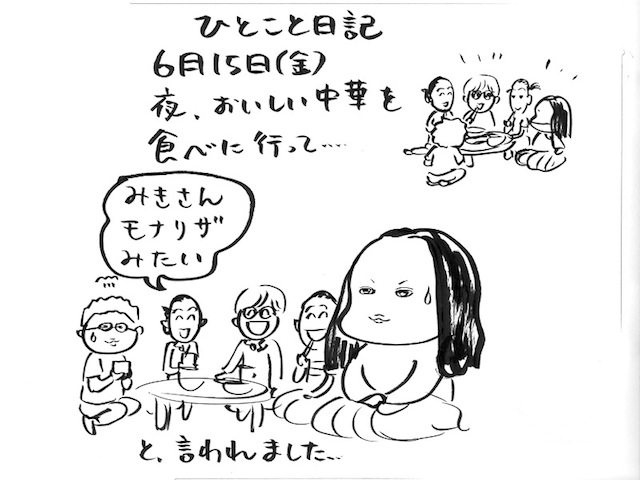 ひとこと日記
6月15日(金)
夜、おいしい中華を
食べに行って……
みきさん
モナリザ
みたい
と、言われました…